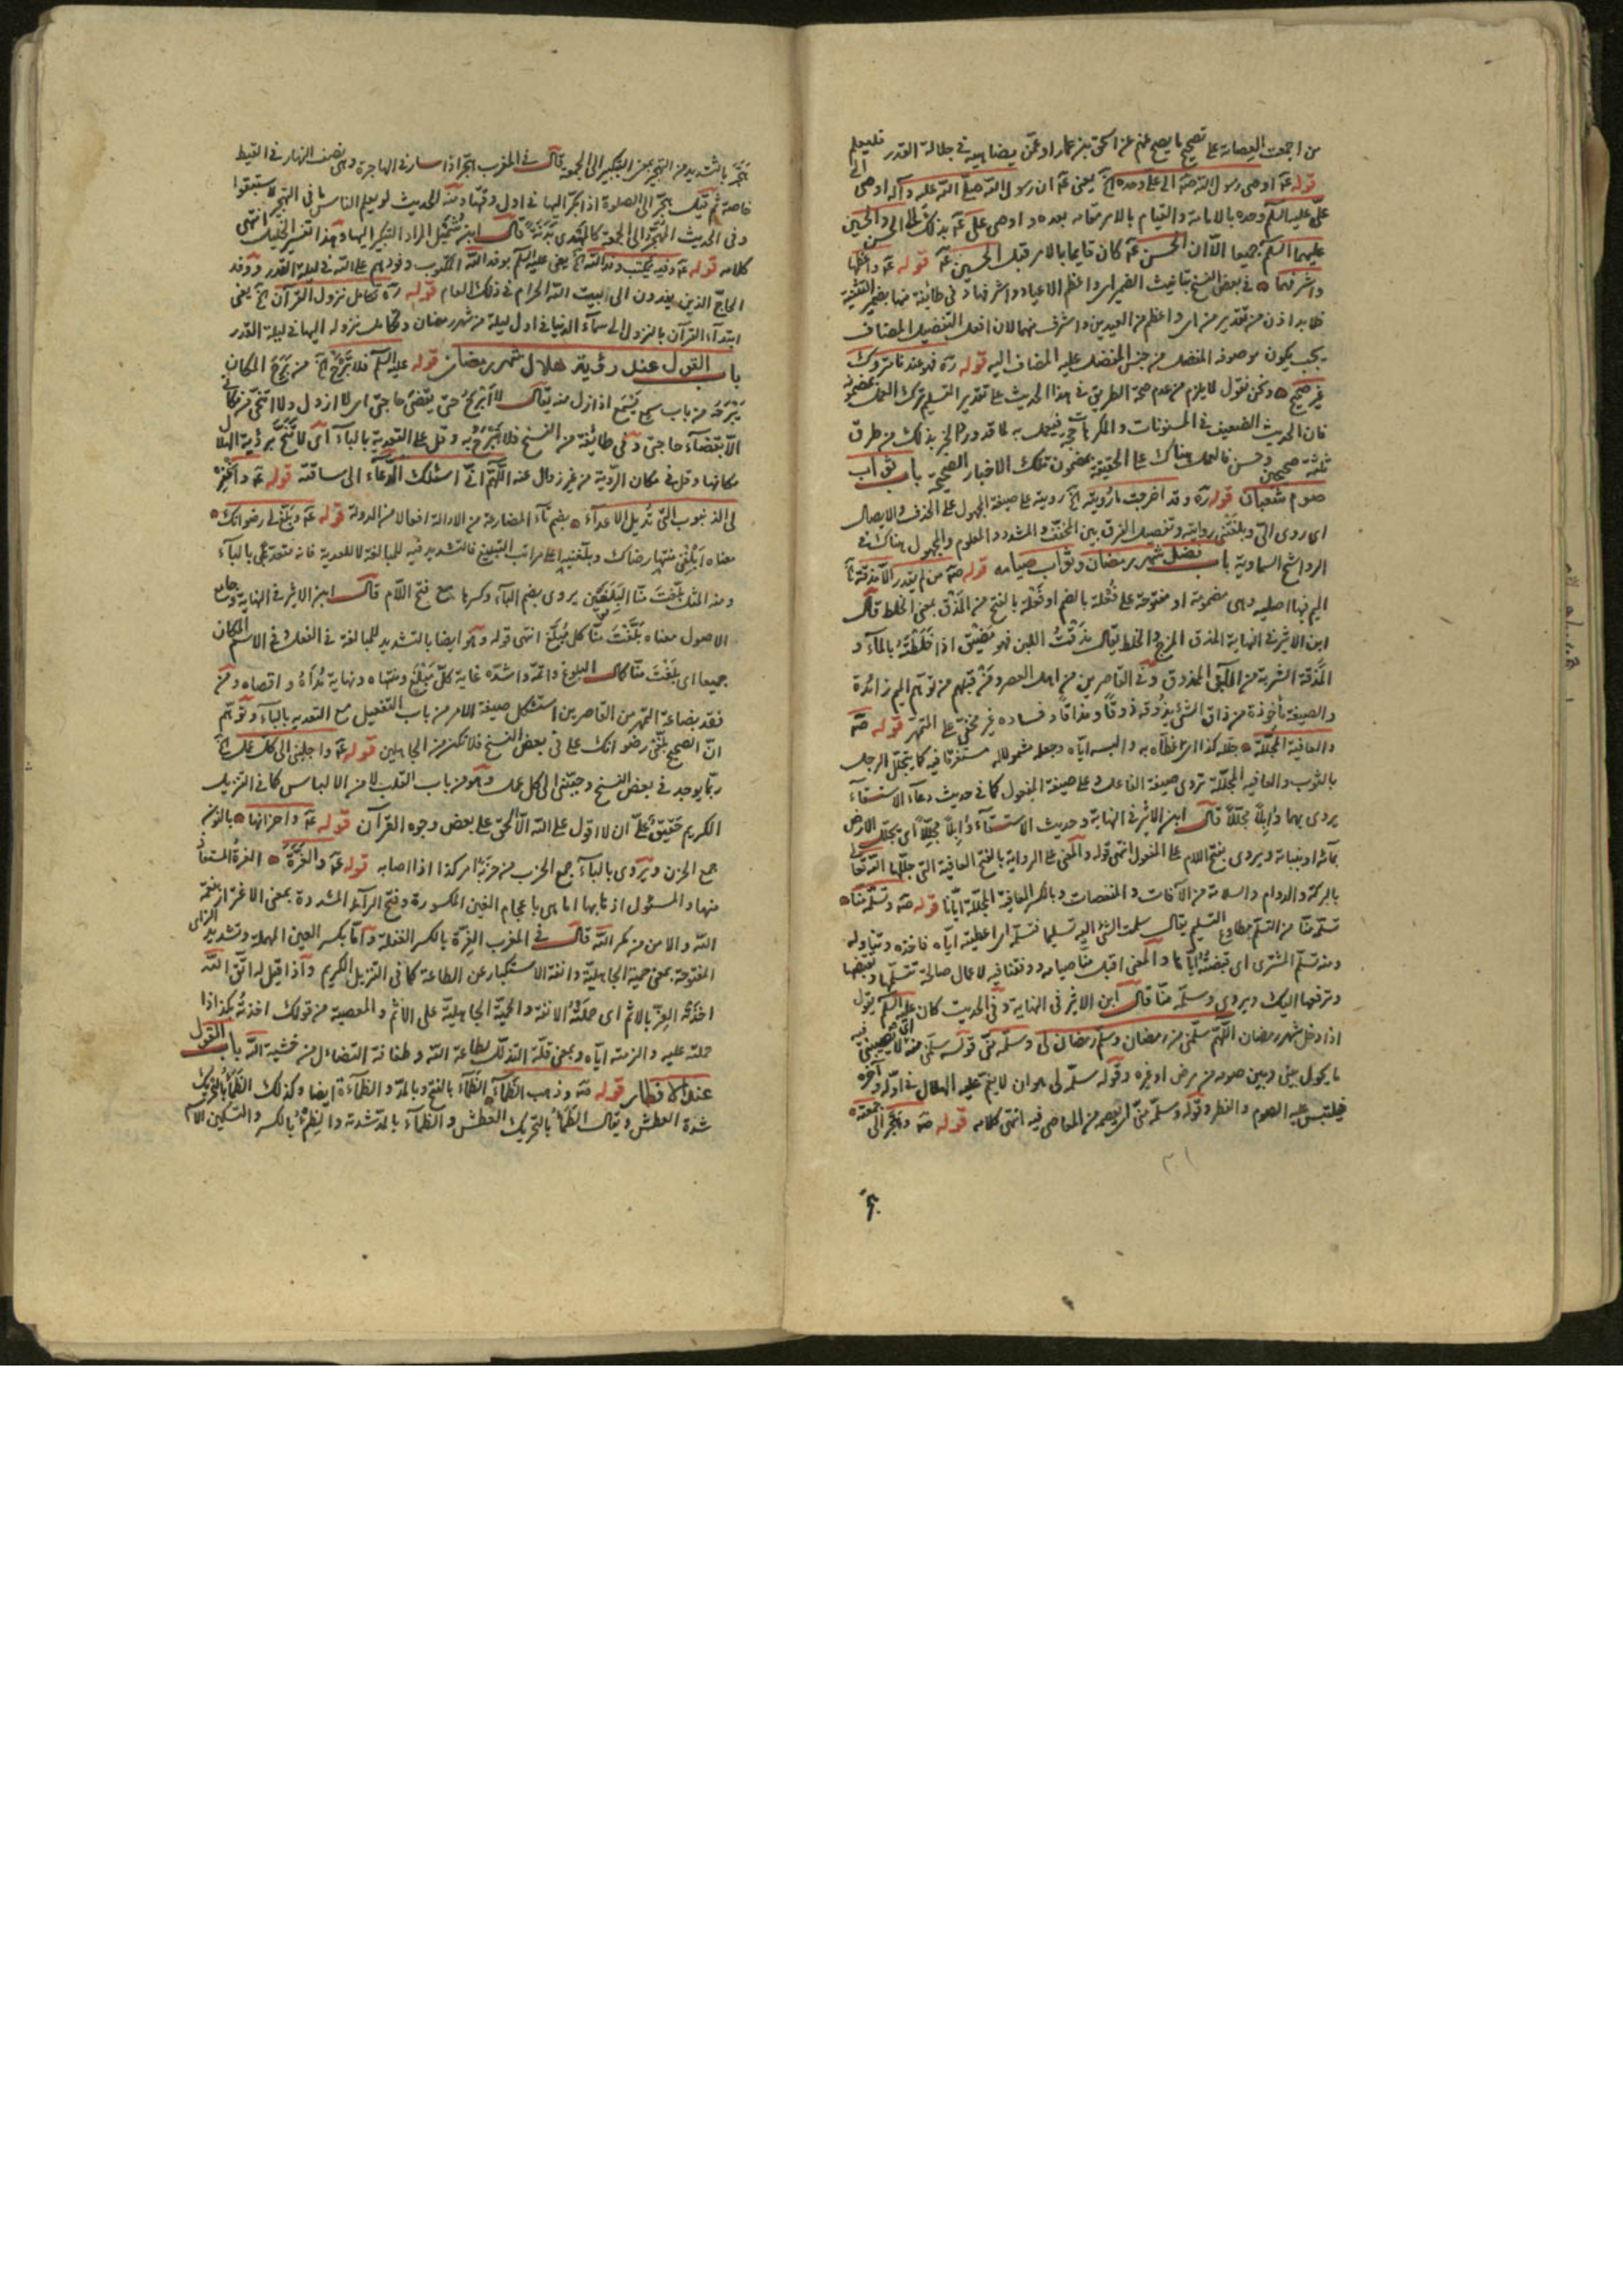 من اجمعت العصابة على تصحيح ما يصح عنهم عن اسحق بن عمار او عمّن يضاهيه في جلالة القدر فليعلم
قوله عه اوصى رسول الله صه الى على وحده آه يعنى عه ان رسول الله صلى الله عليه وآله اوصى الى
علىّ عليه السلم وحده بالامامة والقيام بالامر مقامه بعده و اوصى على عه بذلك الى الحسن والحسين
عليهما السلم جميعا الّا ان الحسن عه كان قايما بالامر قبل الحسين عه قوله عه واعظمها
واشرفهما في بعض النسخ بتانيث الضمير اى واعظم الاعياد واشرفها و في طائفة منها بضمير التثنية
فلابد اذن من تقدير من اى واعظم من العيدين واشرف منهما لان افعل التفضيل المضاف
يجب يكون موصوفه المفضل من جنس المفضل عليه المضاف اليه قوله ره فهو عندنا متروك
غير صحيح ونحن نقول لا يلزم من عدم صحة الطريق في هذا الحديث على تقدير التسليم ترك العمل بمضمونه
فان الحديث الضعيف في المسنونات والمكروهات حجة فيعمل به لما قد ورد الخبر بذلك من طرق
ثلثة صحيحين وحسن فالعمل هناك على الحقيقة بمضمون تلك الاخبار الصحيحة باب ثواب
صوم شعبان قوله ره وقد اخرجت ما رويته آه رويته على صيغة المجهول على الحذف والايصال
اى روى الىّ وبلغتنى روايته وتفصيل الفرق بين المخفف والمشدد والمعلوم والمجهول هناك في
الرواشح السماوية باب فضل شهر رمضان وثواب صيامه قوله صه من لم يقدر الّا مذقة آه
الميم فيها اصليه وهى مضمومة او مفتوحة على فُعْلة بالضم او فَعْلة بالفتح من المَذْق بمعنى الخلط قال
ابن الاثير في النهاية المذق المزج والخلط يقال مَذَقْتُ اللبن فهو مَذيق اذا خَلَطْتَهُ بالمآء و
المَذْقة الشربة من اللبن الممذوق وفى القاصرين من اهل العصر ومَن قبلهم من توهم الميم زائدة
والصيغة مأخوذة من ذاق الشئ يذوقه ذَوْقًا ومَذاقًا وفساده غير مختفىٍ على المتمهر قوله صه
والعافية المجلّلة جلّله كذا اى غطّاه به والبسه ايّاه وجعله مشمولا له مستغرقا فيه كما يتجلل الرجل
بالثوب والعافيه المجلّلة تروى صيغة الفاعل وعلى صيغة المفعول كما في حديث دعآء الاستسقآء
يروى بهما وابلاً مجلّلاً قال ابن الاثير في النهاية وحديث الاستسقآء وابلاً مجلِّلاً اى يجلّل الارض
بمآئه او بنباته ويروى بفتح اللام على المفعول انتهى قوله والمعنى على الرواية بالفتح العافية التى جلّلها الله تعالى
بالبركة والدوام والسلامة من الآفات والمنغصات وبالكسر العافية المجلّلة ايّانا قوله صه وتسلّمه منّا
تسلّمه منّا من التسلّم مطاوع التسليم يقال سلّمت الشئ اليه تسليما فتسلّمه اى اعطيته ايّاه فاخذه وتناوله
ومنه تسلّم المشترى اى قبضته ايّاها والمعنى اقبل منّا صيامه ووفقنا فيه لاعمال صالحة تتسلّمها وتقبضها
وترفعها اليك ويروى وسلّمه منّا قال ابن الاثير في النهاية وفى الحديث كان عليه السلم يقول
اذا دخل شهر رمضان اللّهمّ سلّمنى من رمضان وسلّم رمضان لى وسلّمه منّى قوله سلّمنى منه اى لا يصيبنى فيه
ما يحول بينى وبين صومه من مرض او غيره وقوله سلّمه لى هو ان لا يغمّ عليه الهلال في اوّله وآخره
فيلتبس عليه الصوم والفطر وقوله وسلّمه منّى اى يعصمه من المعاصى فيه انتهى كلامه قوله صه وهجّر الى جمعته
هجّر
هجّر بالتشديد من التهجير بمعنى التبكير الى الجمعة قال في المغرب هجّر اذا سار في الهاجرة وهى نصف النهار في القيظ
خاصة ثم قيل هجّر الى الصلوة اذا بكّر اليها في اول وقتها ومنه الحديث لو يعلم الناس ما في التهجير لاستبقوا
وفى الحديث المُهَجِّر الى الجمعة كالمُهْدى بَدَنَةً قال ابن شُمَيْل المراد التبكير اليها وهذا تفسير الخليل انتهى
كلامه قوله عه وفيه يكتب وفد الله آه يعنى عليه السلم بوفد الله المكتوب وفودهم على الله في ليلة القدر ووفد
الحاجّ الذين يفدون الى بيت الله الحرام في ذلك العام قوله ره تكامل نزول القرآن آه يعنى
ابتدآء القرآن بالنزول الى سمآء الدنيا في اول ليلة من شهر رمضان وتكامل نزوله اليها في ليلة القدر
باب القول عند رؤية هلال شهر رمضان قوله عليه السلم فلا تَبْرَح آه من بَرِحَ المكان
يَبْرَحُه من باب سمع يَسْمَع اذا زال منه يقال لا أَبْرَحُ حتى يقضى حاجتى اى لا ازول ولا اتنحى من مكانى
الّا بقضآء حاجتى وفى طائفة من النسخ فلا تَبْرَحْ به وقل على التعدية بالبآء اى لا تُنَحِّ برؤية الهلال
مكانها وقل في مكان الرؤية من غير زوال عنه اللّهمّ انّى اسئلك الدعآء الى ساقته قوله عه واغفر
لى الذنوب التى تُديل الاعدآء بضم تآء المضارعة من الادالة افعالا من الدولة قوله عه وبلّغنى رضوانك
معناه أَبْلِغْنى منتهى رضاك وبلّغنيه اعلى مراتب التبليغ فالتشديد فيه للمبالغة لا للتعدية فانه متعد بالبآء
ومنه المثل بلّغتَ منّا البُلَغين يروى بضم البآء وكسرها مع فتح اللام قال ابن الاثير في النهاية وجامع
الاصول معناه بَلَّغْتَ منّا كل مَبْلَغ انتهى قوله وهو ايضا بالتشديد للمبالغة في الفعل وفى الاسم
جميعا اى بَلَغْتَ منّا كمال البلوغ واتمّه واشدّه غاية كلّ مَبْلَغ ومنتهاه ونهاية مُداهُ واقصاه ومن
فقد بضاعة التمهّر من القاصرين استشكل صيغة الامر من باب التفعيل مع التعديه بالبآء وتوهم
انّ الصحيح بلّغنى رضوانك على ما في بعض النسخ فلا تكن من الجاهلين قوله عه واجلبنى الى كلّ عمل آه
ربّما يوجد في بعض النسخ وجنّبنى الى كل عمل وهو من باب القلب لا من الالباس كما في التنزيل
الكريم حَقيقٌ علىّ ان لا اقول على الله الّا الحقّ على بعض وجوه القرآن قوله عه واحزانها بالنون
جمع الحزن ويُروى بالبآء جمع الحزب من حَزَبَهُ امر كذا اذا اصابه قوله عه والغِرّة الغِرةُ المستعاذ
منها والمسئول اذهابها اما هى باعجام الغين المكسورة وفتح الرآء المشددة بمعنى الاغترار بنعمة
الله والامن من مكر الله قال في المغرب الغِرّة بالكسر الغفلة وامّا بكسر العين المهملة وتشديد الزاى
المفتوحة بمعنى حمية الجاهلية وانفة الاستكبار عن الطاعة كما في التنزيل الكريم واذا قيل له اتّق الله
اخذته العِزّة بالاثم اى حملتهُ الانفة والحميّة الجاهليّة على الاثم والمعصية من قولك اخذتهُ بكذا اذا
حملته عليه والزمته ايّاه وبمعنى قلّة التذلّل بطاعة الله و من خشية الله باب القول
عند الافطار قوله صه وذهب الظمآء الظَمآء بالفتح وبالمدّ والظمآءة ايضا وكذلك الظَمَأُ بالتحريك
شدة العطش ويقال الظمأُ بالتحريك العطش والظمآء بالمدّ شدته والظِمْءُ بالكسر والتسكين الاسم